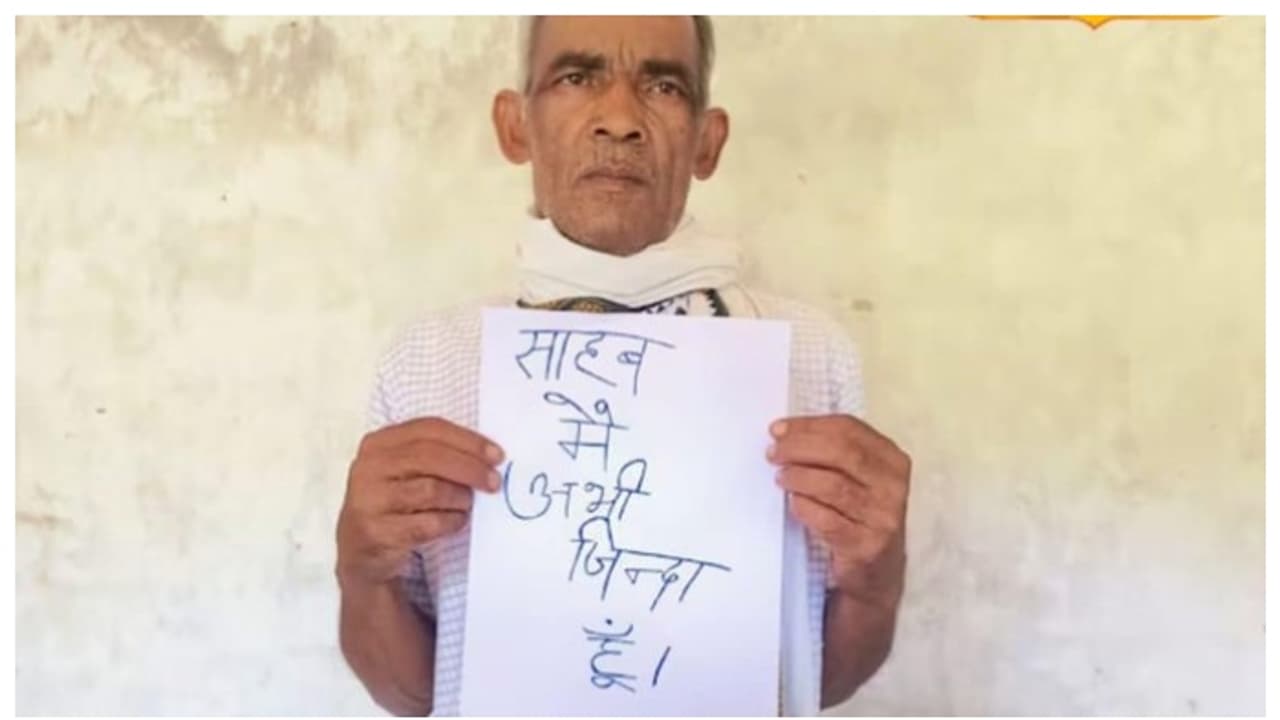 साहब
मैं
अभी
जिन्दा
हूँ।